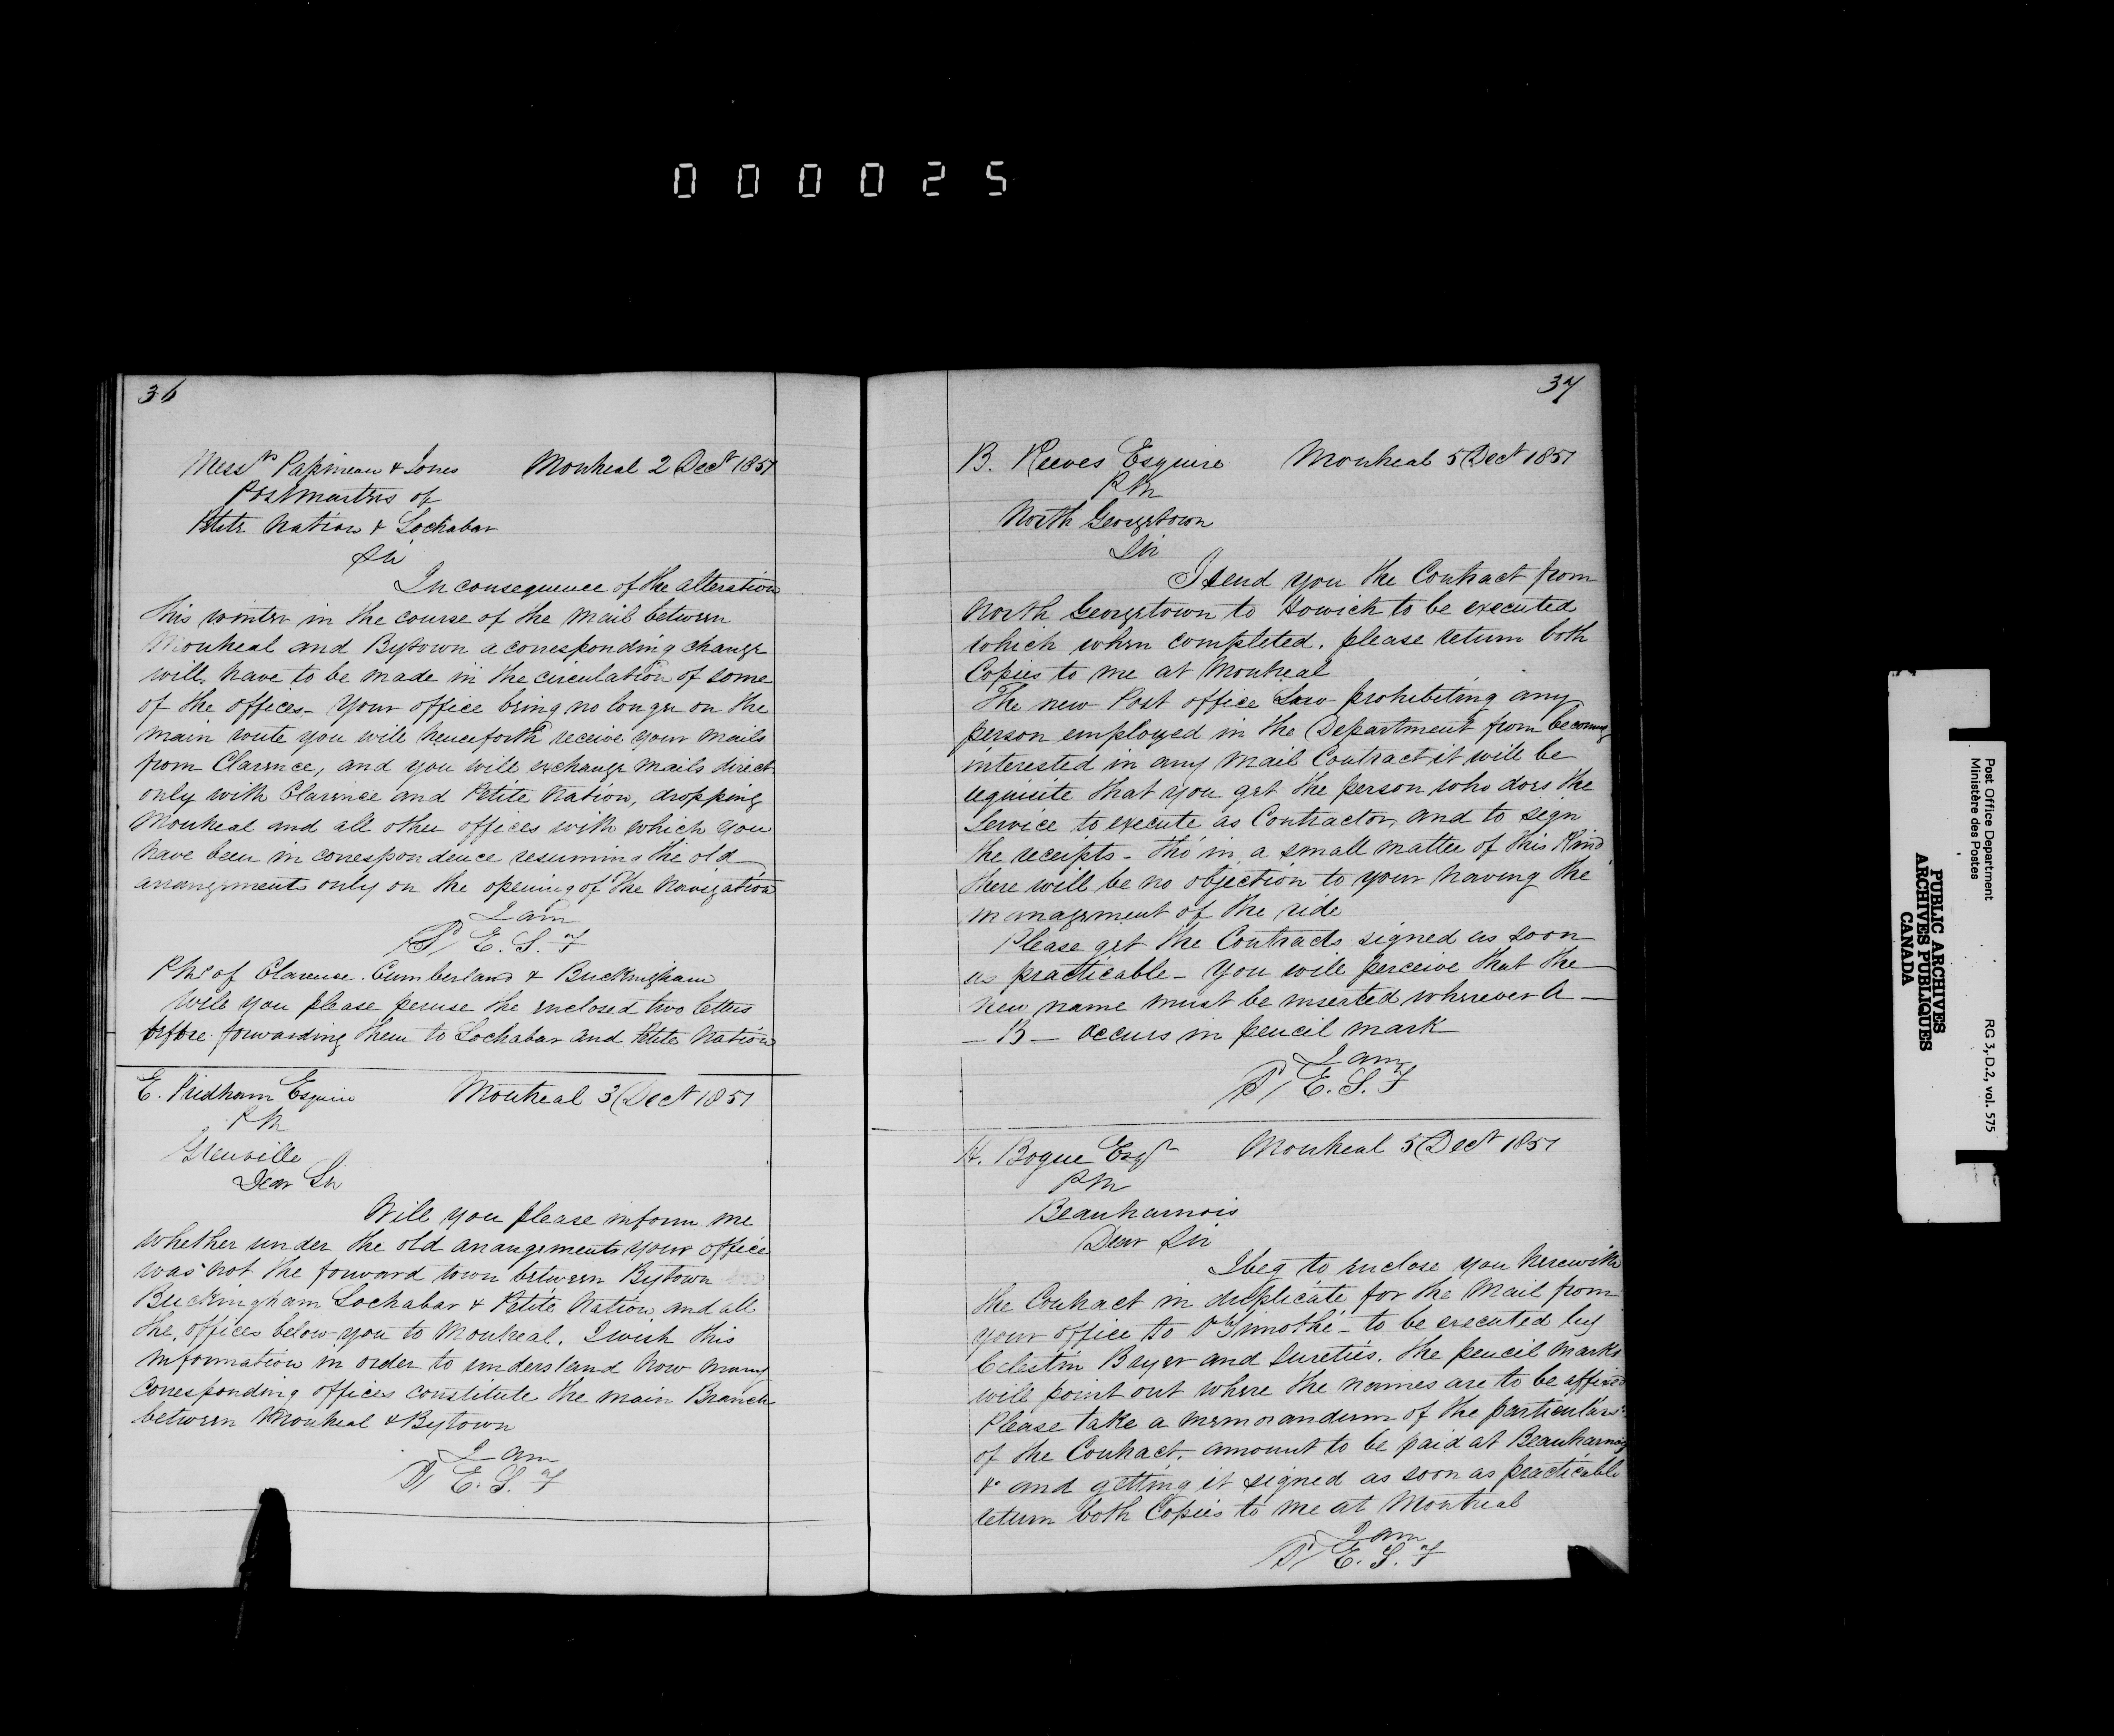 000025
36
Mess.rs Papineau & Jones Montreal 2 Decr 1851
Postmasters of
Petite Nation & Lochabar
Sir
In consequence of the alteration
this winter in the course of the mail between
Montreal and Bytown a corresponding change
will have to be made in the circulation of some
of the offices - Your office being no longer on the
main route you will henceforth receive your mails
from Clarence, and you will exchange mails direct
only with Clarence and Petite Nation, dropping
Montreal and all other offices with which you
have been in correspondence resuming the old
arrangements only on the opening of the Navigation
I am
E. S. F
PMrs of Clarence. Cumberland & Buckingham
Will you please peruse the enclosed two letters
before forwarding them to Lochabar and Petite Nation
E. Pridham Esquire Montreal 3 Decr 1851
PM
Grenville
Dear Sir
Will you please inform me
whether under the old arrangements your office
was not the forward town between Bytown
Buckingham Lochabar & Petite Nation and all
the offices below you to Montreal. I wish this
information in order to understand how many
Corresponding offices constitute the main Branch
between Montreal & Bytown
I am
E. S. F
37
B. Reeves Esquire Montreal 5 Decr 1851
PM
North Georgetown
Sir
I send you the Contract from
North Georgetown to Howick to be executed
which when completed. please return both
Copies to me at Montreal
The new Post office Law prohibiting any
person employed in the Department from becoming
interested in any Mail Contract it will be
requisite that you get the person who does the
Service to execute as Contractor, and to sign
the receipts - tho' in a small matter of this Kind
there will be no objection to your having the
management of the ride
Please get the Contracts signed as soon
as practicable - You will perceive that the
new name must be inserted wherever A —
— B — occurs in pencil mark
I am
E. S. F
H. Bogue Esqr Montreal 5 Decr 1851
PM
Beauharnois
Dear Sir
I beg to enclose you herewith
the Contract in duplicate for the Mail from
your office to St Timothé - to be executed by
Celestin Boyer and Sureties. The pencil marks
will point out where the names are to be affixed
Please take a memorandum of the particulars
of the Contract. amount to be paid at Beauharnois
&c and getting it signed as soon as practicable
return both Copies to me at Montreal
I am
E. S. F
PUBLIC ARCHIVES
ARCHIVES PUBLIQUES
CANADA
Post Office Department
Ministère des Postes
RG 3, D.2, vol. 575